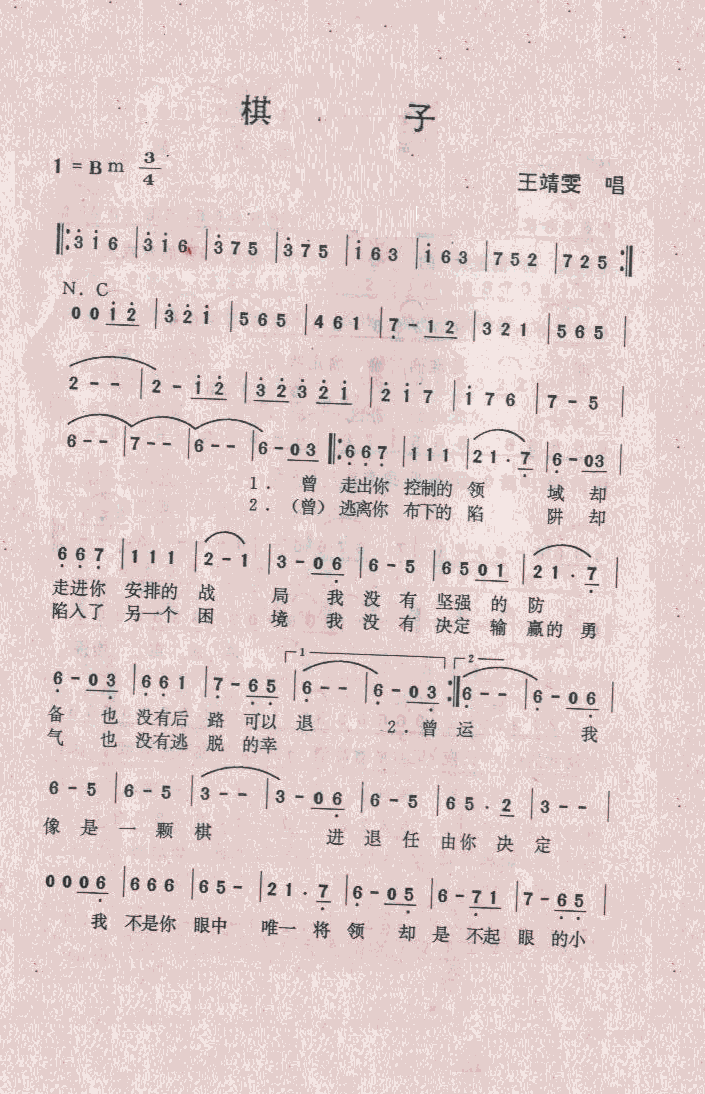 棋 子
1 = Bm 3/4
王靖雯 唱
‖: 3 1 6 | 3 1 6 | 3 7 5 | 3 7 5 | 1 6 3 | 1 6 3 | 7 5 2 | 7 2 5 :‖
N. C
0 0 1 2 | 3 2 1 | 5 6 5 | 4 6 1 | 7 - 1 2 | 3 2 1 | 5 6 5 |
2 - - | 2 - 1 2 | 3 2 3 2 1 | 2 1 7 | 1 7 6 | 7 - 5 |
6 - - | 7 - - | 6 - - | 6 - 0 3 ‖: 6 6 7 | 1 1 1 | 2 1 · 7 | 6 - 0 3 |
1. 曾 走出你 控制的 领 域 却
2.（曾）逃离你 布下的 陷 阱 却
6 6 7 | 1 1 1 | 2 - 1 | 3 - 0 6 | 6 - 5 | 6 5 0 1 | 2 1 · 7 |
走进你 安排的 战 局 我 没 有 坚强 的 防
陷入了 另一个 困 境 我 没 有 决定 输 赢的 勇
1 2
6 - 0 3 | 6 6 1 | 7 - 6 5 | 6 - - | 6 - 0 3 :‖ 6 - - | 6 - 0 6 |
备 也 没有后 路 可以 退 2. 曾 运 我
气 也 没有逃 脱 的幸
6 - 5 | 6 - 5 | 3 - - | 3 - 0 6 | 6 - 5 | 6 5 · 2 | 3 - - |
像 是 一 颗 棋 进 退 任 由你 决 定
0 0 0 6 | 6 6 6 | 6 5 - | 2 1 · 7 | 6 - 0 5 | 6 - 7 1 | 7 - 6 5 |
我 不是你 眼中 唯一 将 领 却 是 不起 眼 的小